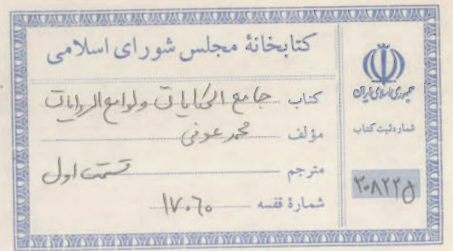 کتابخانهٔ مجلس شورای اسلامی
کتاب جامع الحکایات ولوامع الروایات
مؤلف محمد عوفی
مترجم قسمت اول
شمارهٔ قفسه ۱۷۰۶۰
جمهوری اسلامی ایران
شماره ثبت کتاب
۳۰۸۲۲۵